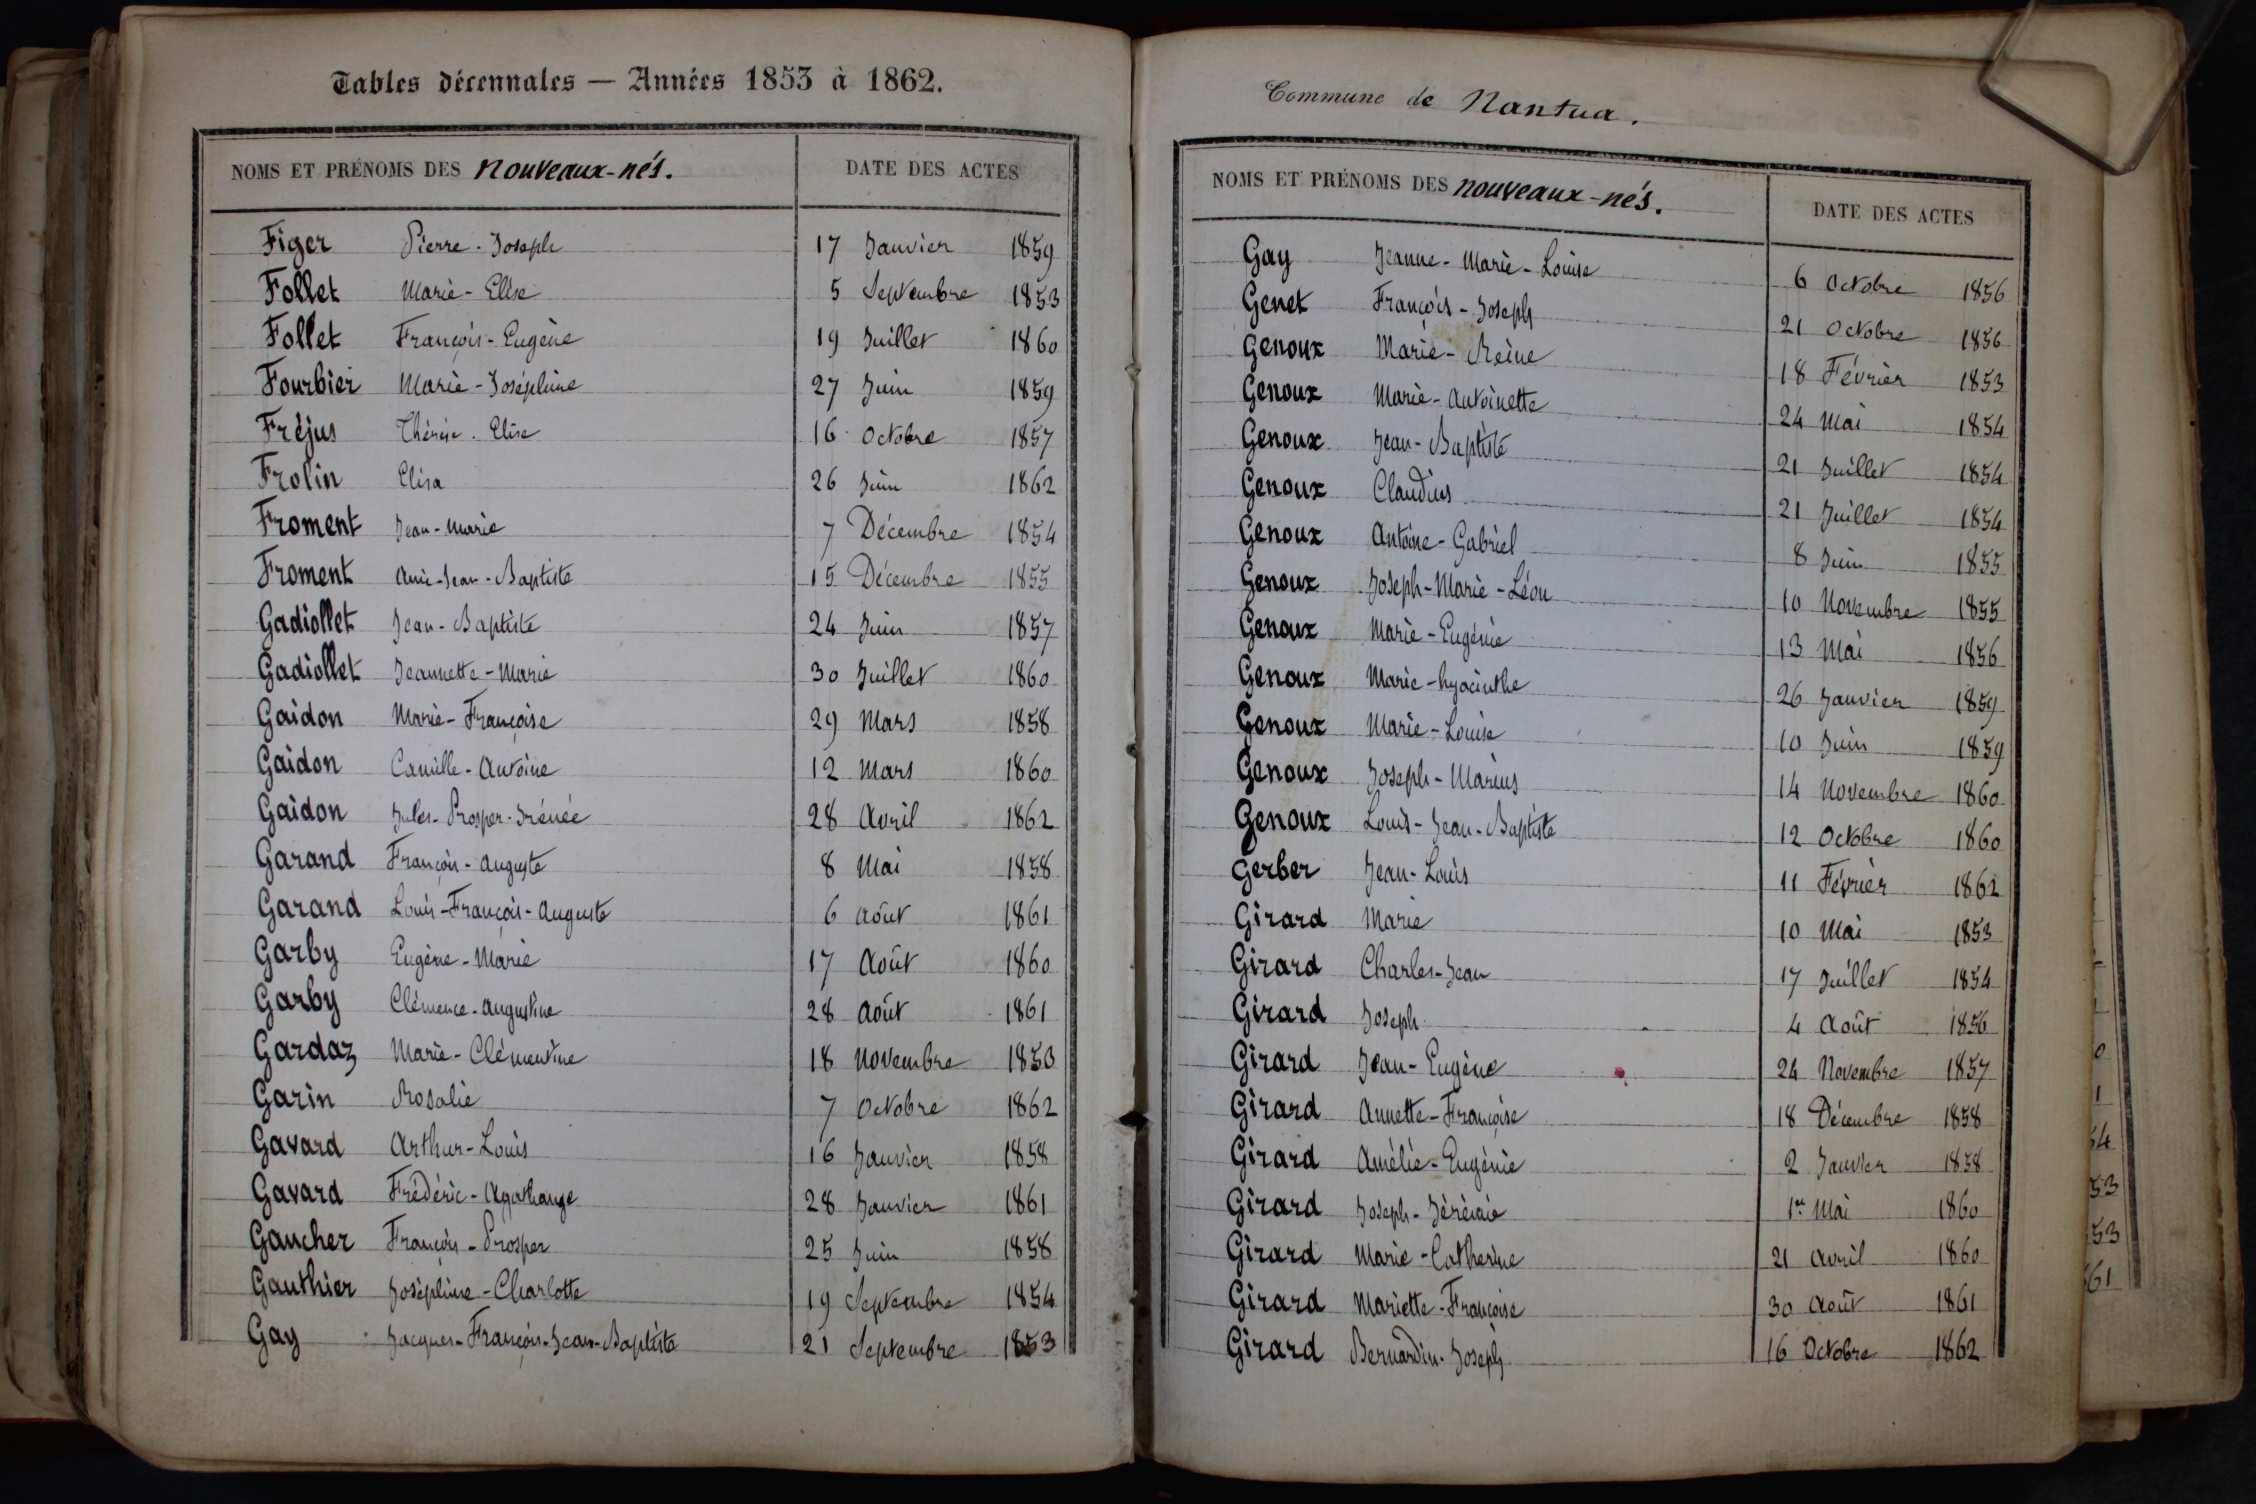 Tables décennales — Années 1853 à 1862.
NOMS ET PRÉNOMS DES nouveaux-nés. DATE DES ACTES
Figer Pierre-Joseph 17 Janvier 1859
Follet Marie-Elise 5 Septembre 1853
Follet François-Eugène 19 Juillet 1860
Fourbier Marie-Joséphine 27 Juin 1859
Fréjus Thérèse-Elise 16 Octobre 1857
Frolin Elisa 26 Juin 1862
Froment Jean-Marie 7 Décembre 1854
Froment Jean-Baptiste 15 Décembre 1855
Gadiollet Jean-Baptiste 24 Juin 1857
Gadiollet Jeannette-Marie 30 Juillet 1860
Gaidon Marie-Françoise 29 Mars 1858
Gaidon Camille-Antoine 12 Mars 1860
Gaidon Jules-Prosper-Irénée 28 Avril 1862
Garand François-Auguste 8 Mai 1858
Garand Louis-François-Auguste 6 Août 1861
Garby Eugène-Marie 17 Août 1860
Garby Clémence-Augustine 28 Août 1861
Gardaz Marie-Clémentine 18 Novembre 1853
Garin Rosalie 7 Octobre 1862
Gavard Arthur-Louis 16 Janvier 1858
Gavard Frédéric-Agathange 28 Janvier 1861
Gaucher François-Prosper 25 Juin 1858
Gauthier Joséphine-Charlotte 19 Septembre 1854
Gay Jacques-François-Jean-Baptiste 21 Septembre 1853
Commune de Nantua.
NOMS ET PRÉNOMS DES nouveaux-nés. DATE DES ACTES
Gay Jeanne-Marie-Louise 6 Octobre 1856
Genet François-Joseph 21 Octobre 1856
Genoux Marie-Reine 18 Février 1853
Genoux Marie-Antoinette 24 Mai 1854
Genoux Jean-Baptiste 21 Juillet 1854
Genoux Claudius 21 Juillet 1854
Genoux Antoine-Gabriel 8 Juin 1855
Genoux Joseph-Marie-Léon 10 Novembre 1855
Genoux Marie-Eugénie 13 Mai 1856
Genoux Marie-hyacinthe 26 Janvier 1859
Genoux Marie-Louise 10 Juin 1859
Genoux Joseph-Marius 14 Novembre 1860
Genoux Louis-Jean-Baptiste 12 Octobre 1860
Gerber Jean-Louis 11 Février 1862
Girard Marie 10 Mai 1853
Girard Charles-Jean 17 Juillet 1854
Girard Joseph 4 Août 1856
Girard Jean-Eugène 24 Novembre 1857
Girard Annette-Françoise 18 Décembre 1858
Girard Amélie-Eugénie 2 Janvier 1858
Girard Joseph-Jérémie 1er Mai 1860
Girard Marie-Catherine 21 Avril 1860
Girard Mariette-Françoise 30 Août 1861
Girard Bernardin-Joseph 16 Octobre 1862